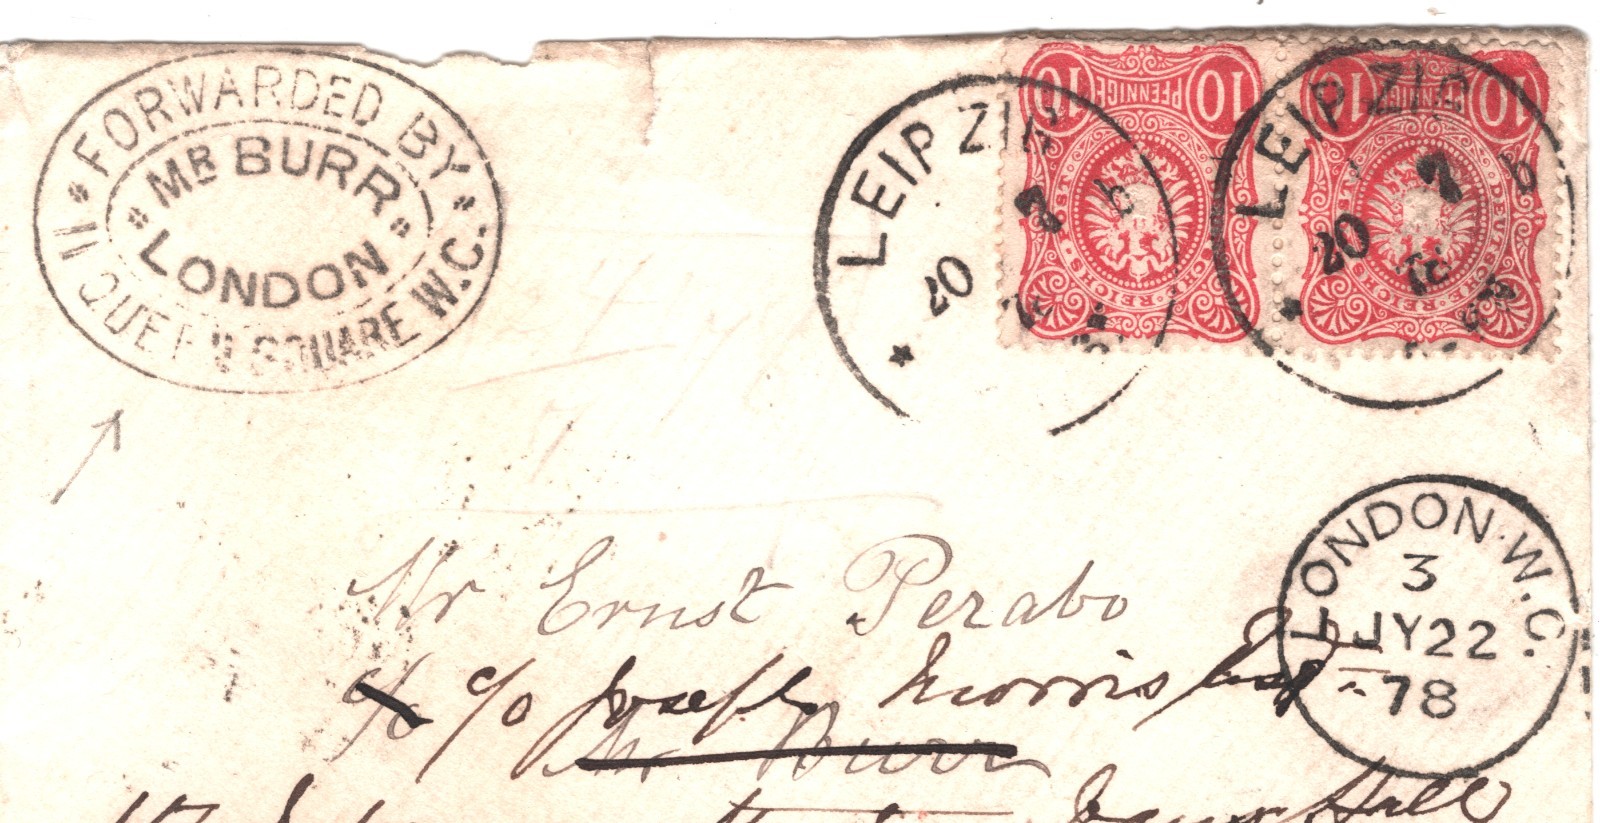 FORWARDED BY
MR BURR
LONDON
11 QUEEN SQUARE W.C.
LEIPZIG
20 7
b
10 PFENNIGE 10
DEUTSCHE REICHS-POST
LEIPZIG
20 7
b
10 PFENNIGE 10
DEUTSCHE REICHS-POST
LONDON.W.C.
3
JY22
78
Mr Ernst Perabo
c/o c/o Joseph Morris Esq
Mr Burr
Hall